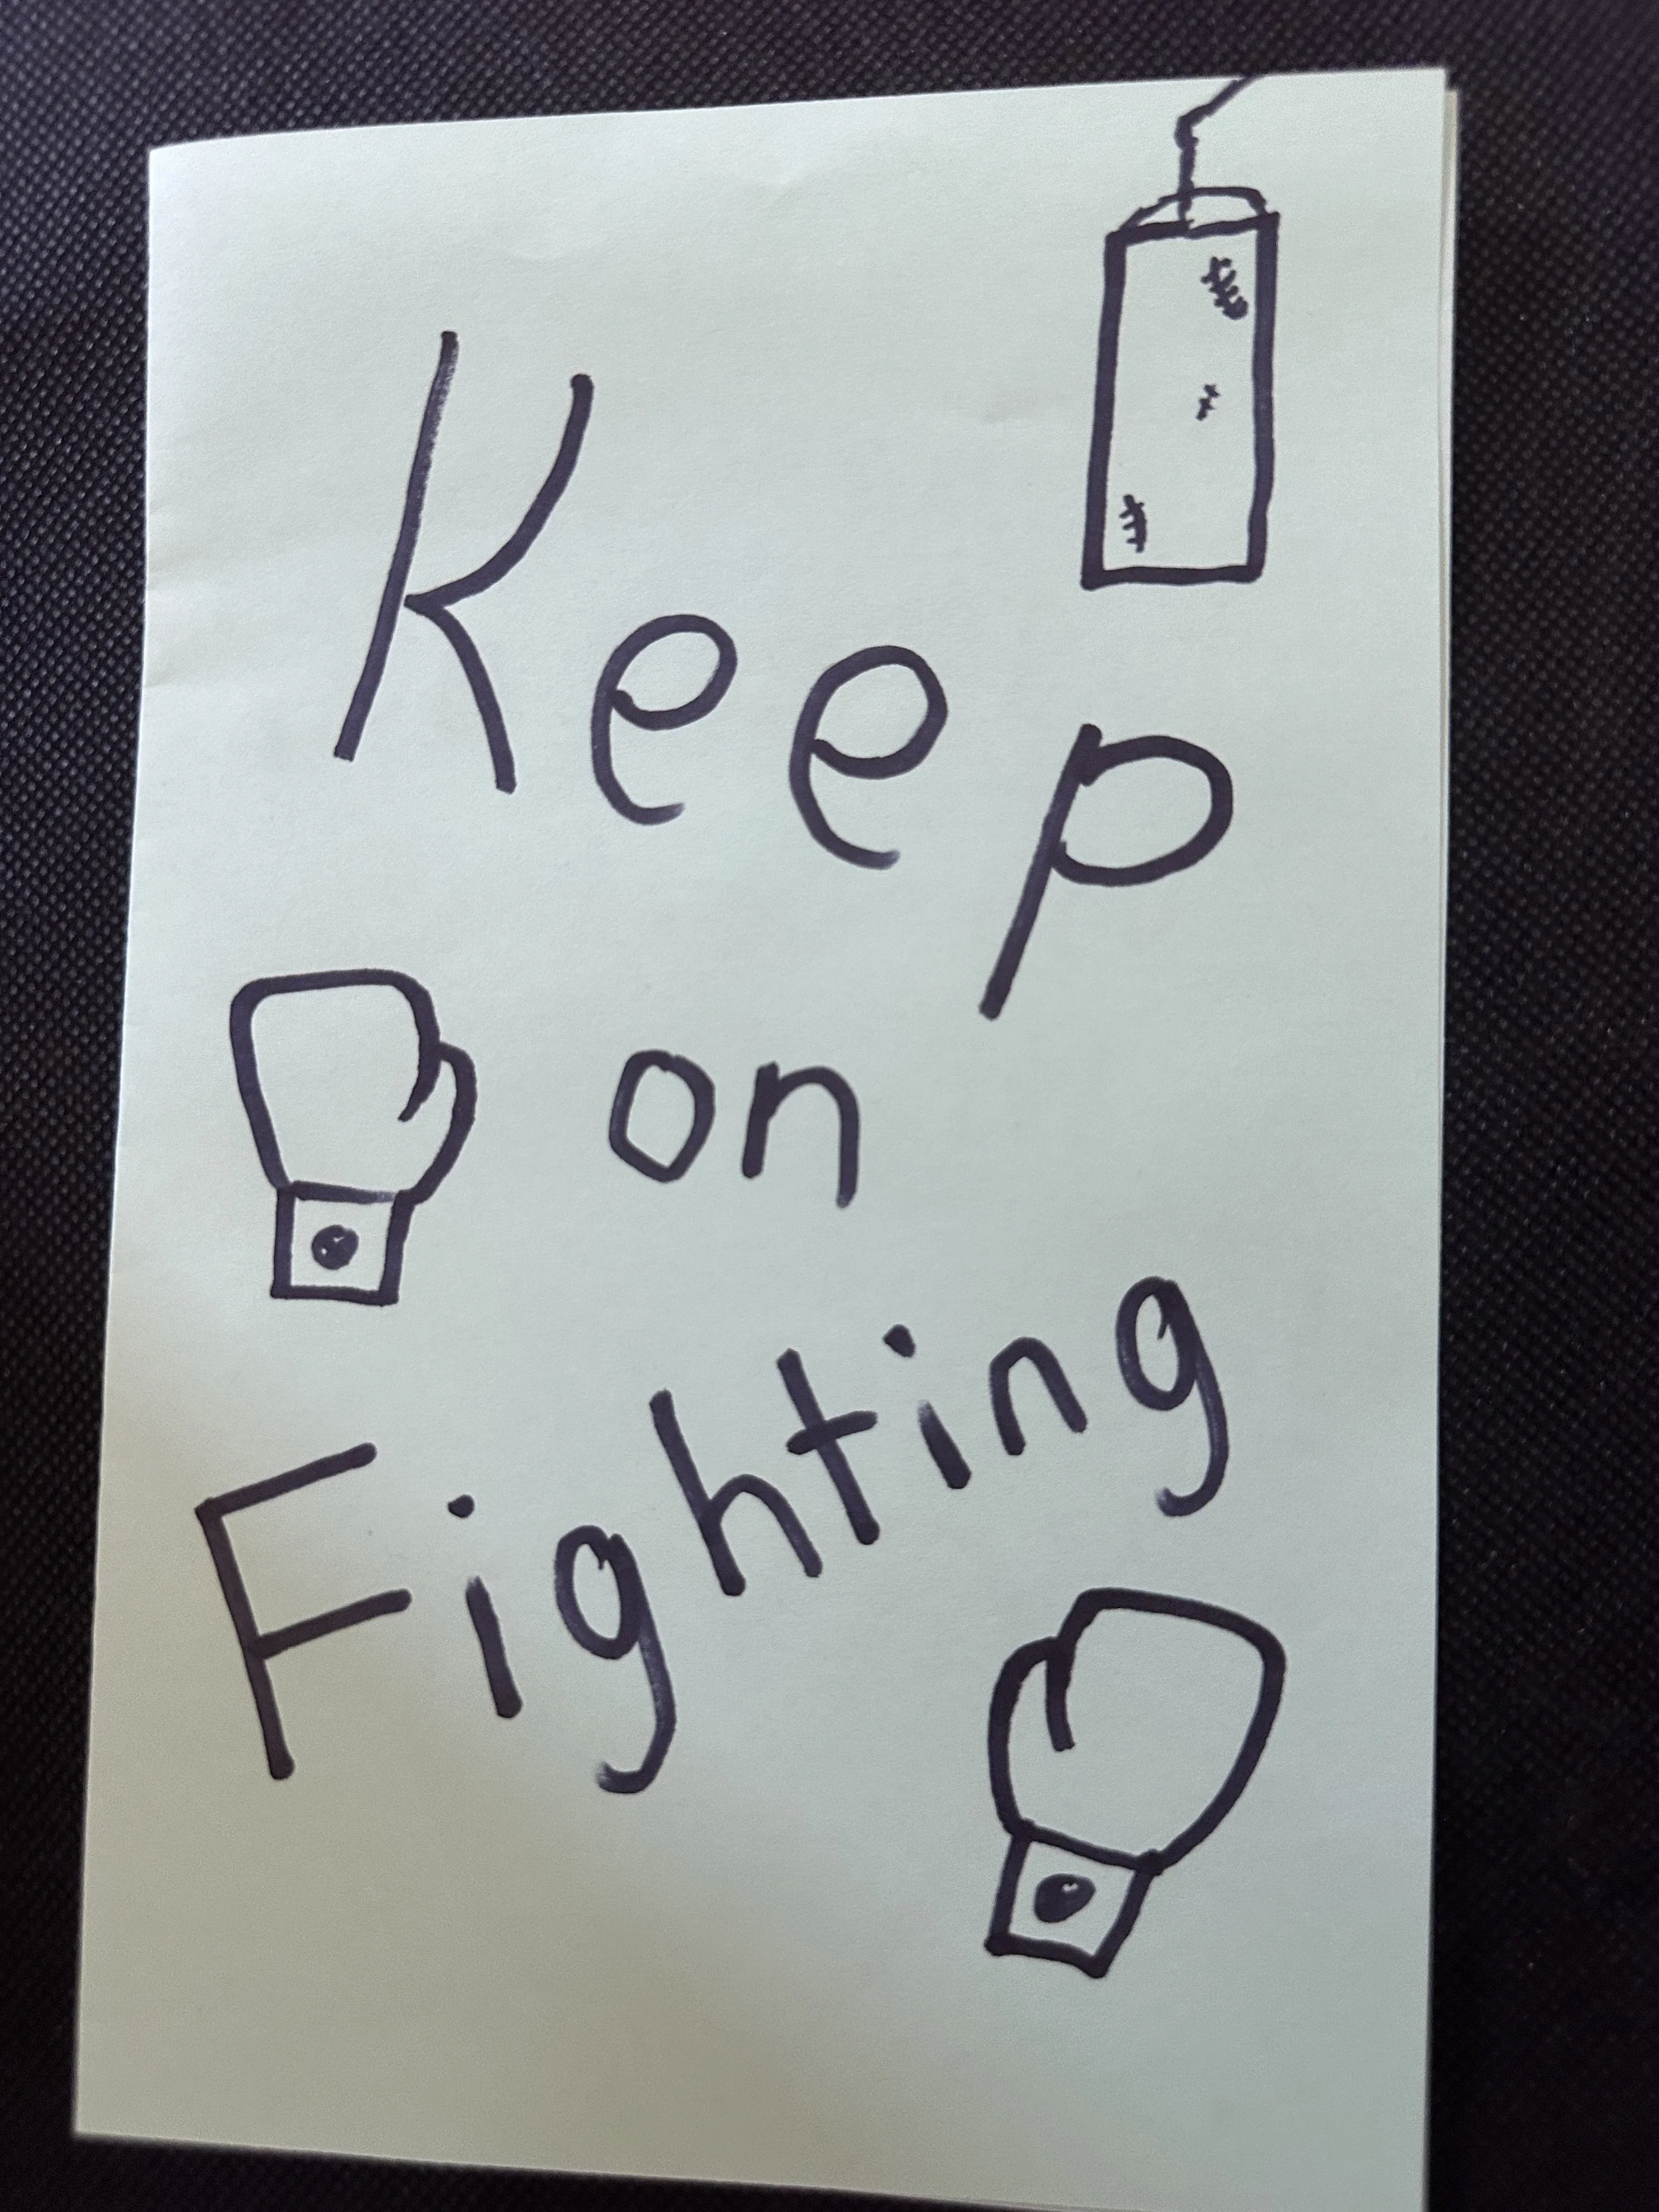 Keep
on
Fighting